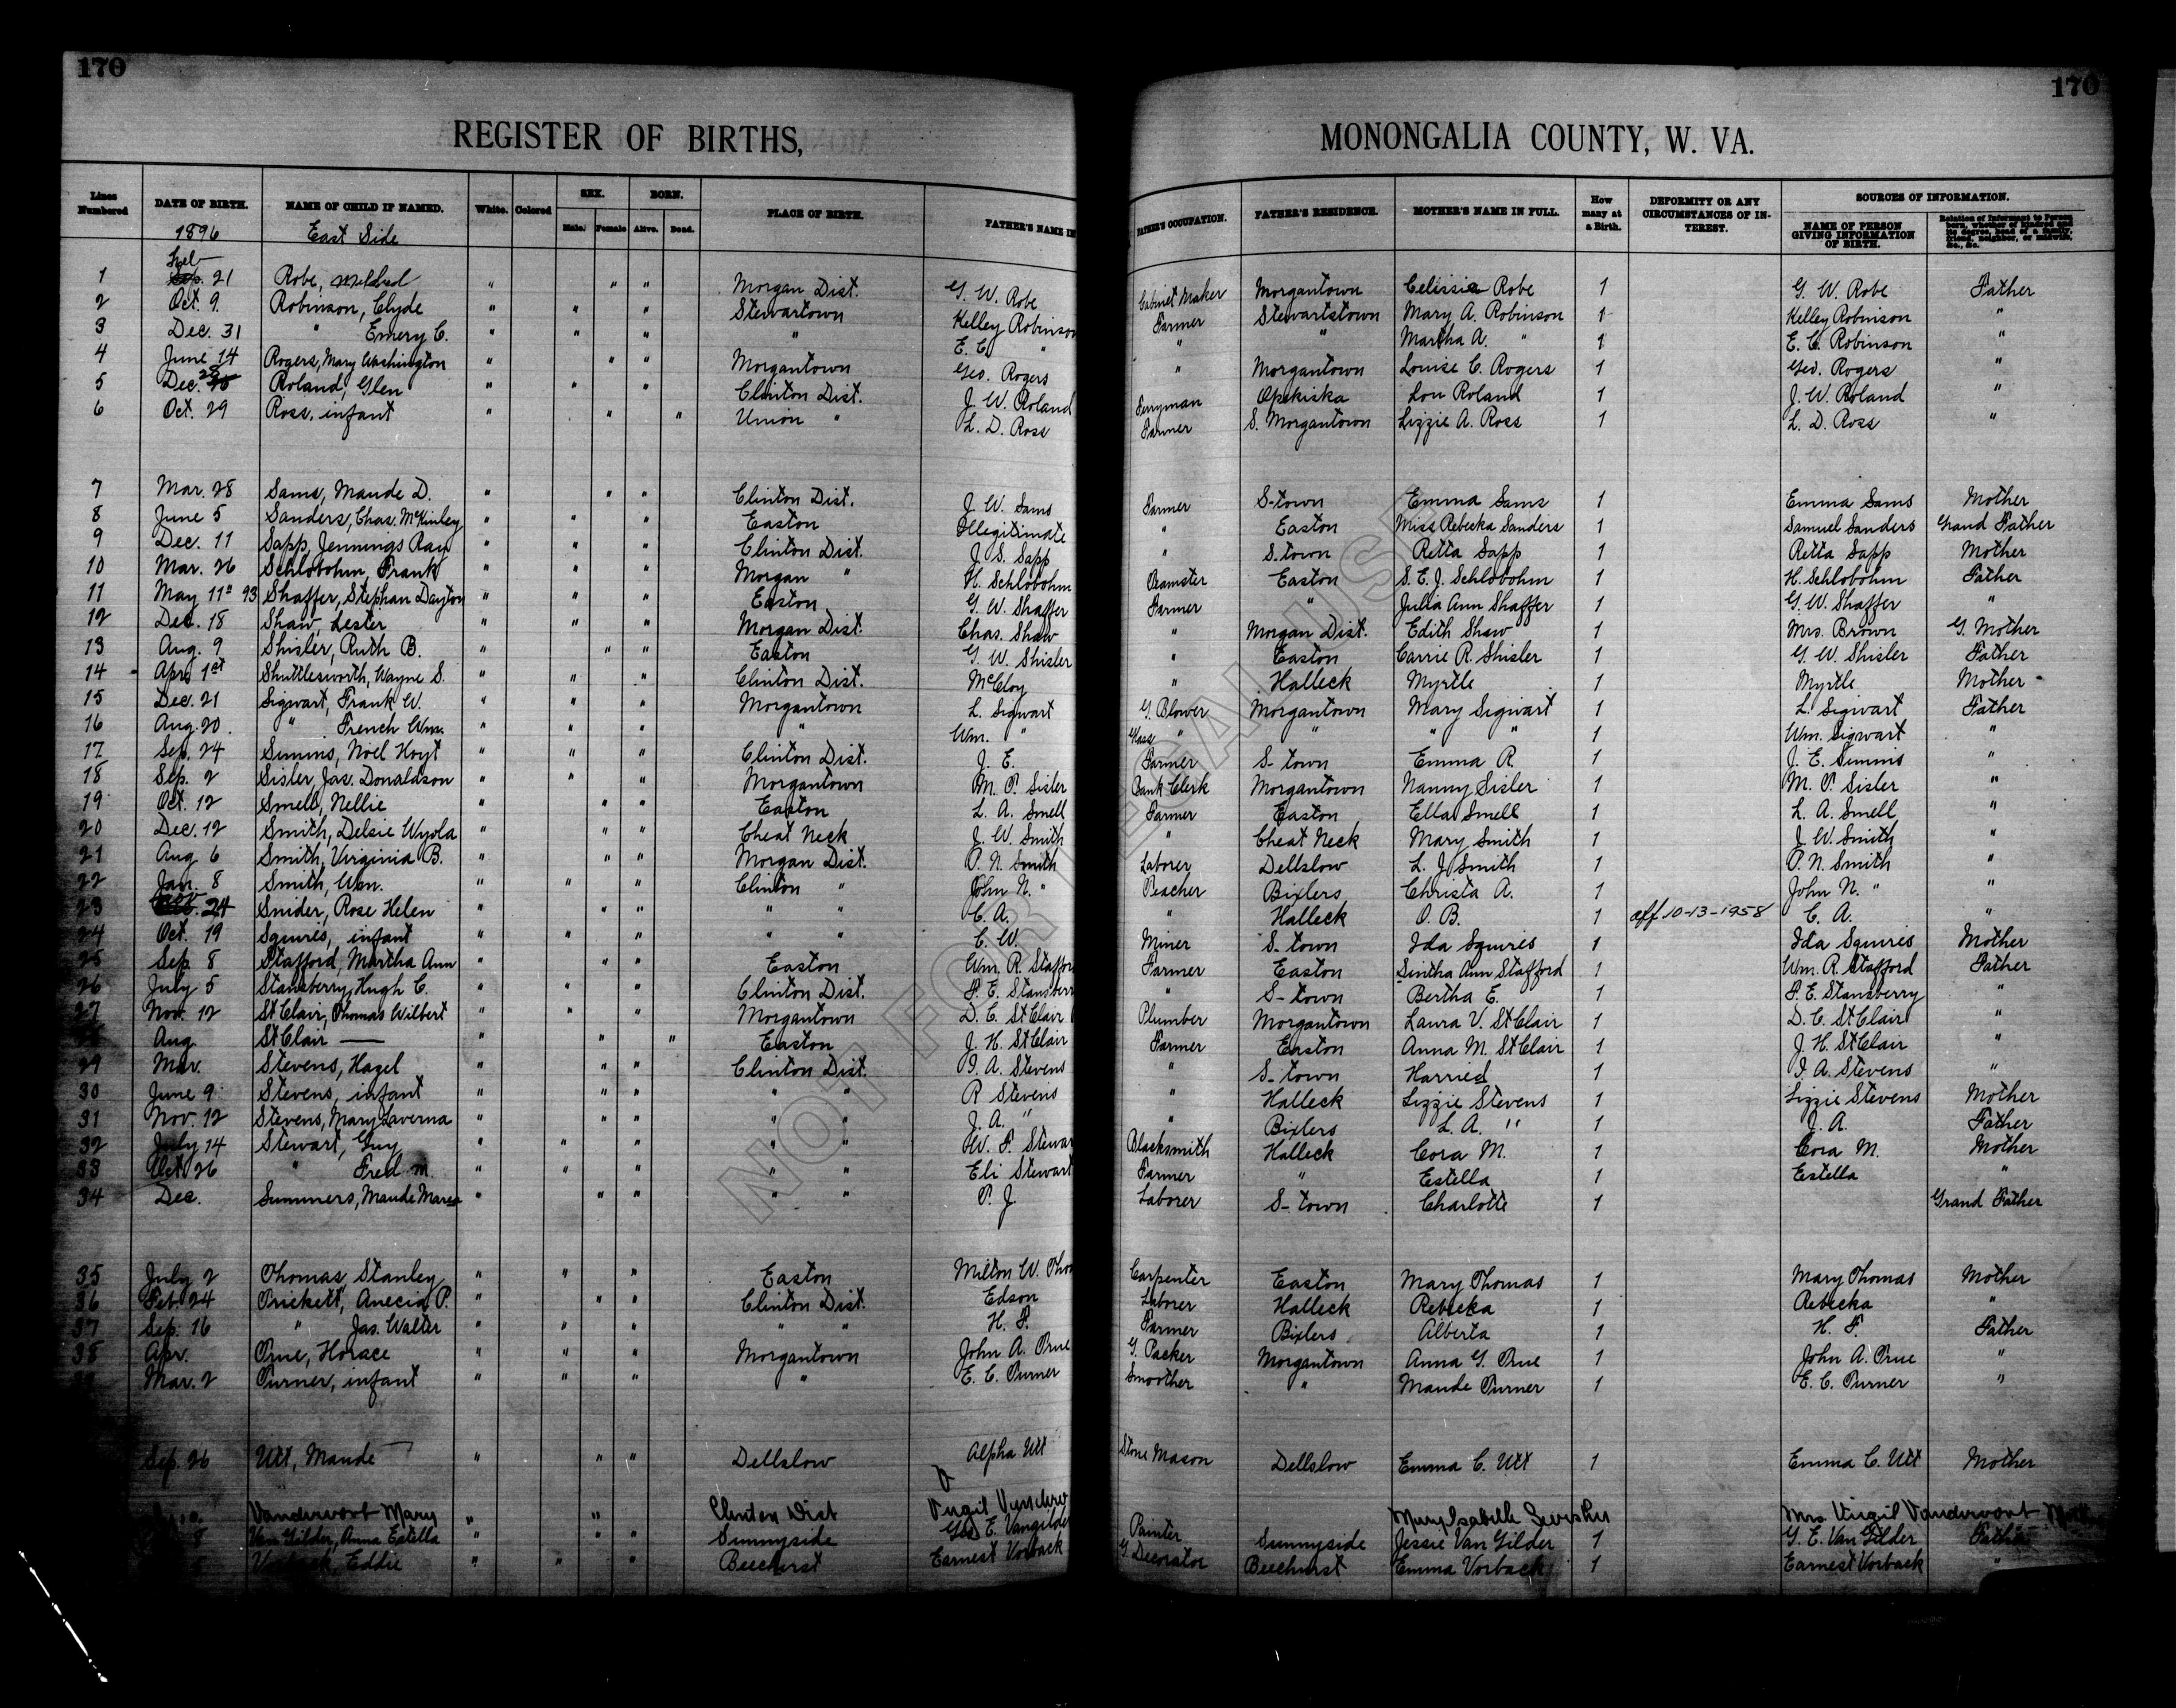 170
170
REGISTER OF BIRTHS,
MONONGALIA COUNTY, W. VA.
Lines Numbered DATE OF BIRTH. NAME OF CHILD IF NAMED. White. Colored SEX. Male. Female BORN. Alive. Dead. PLACE OF BIRTH. FATHER'S NAME IN FATHER'S OCCUPATION. FATHER'S RESIDENCE. MOTHER'S NAME IN FULL. How many at a Birth. DEFORMITY OR ANY CIRCUMSTANCES OF INTEREST. SOURCES OF INFORMATION. NAME OF PERSON GIVING INFORMATION OF BIRTH.
1896 East Side
1 Feb 21 Robe, Mildred " " " Morgan Dist. G. W. Robe Cabinet Maker Morgantown Celissia Robe 1 G. W. Robe Father
2 Oct. 9. Robinson, Clyde " " " Stewartown Kelley Robinson Farmer Stewartstown Mary A. Robinson 1 Kelley Robinson "
3 Dec. 31 " Emery C. " " " " E. C. " " " Martha A. " 1 E. C. Robinson "
4 June 14 Rogers, Mary Washington " " " Morgantown Geo. Rogers " Morgantown Louise C. Rogers 1 Geo. Rogers "
5 Dec. 28 Roland, Glen " " " Clinton Dist. J. W. Roland Ferryman Opekiska Lou Roland 1 J. W. Roland "
6 Oct. 29 Ross, infant " " " Union " L. D. Ross Farmer S. Morgantown Lizzie A. Ross 1 L. D. Ross "
7 Mar. 28 Sams, Maude D. " " " Clinton Dist. J. W. Sams Farmer S-town Emma Sams 1 Emma Sams Mother
8 June 5 Sanders, Chas. McKinley " " " Easton Illegitimate " Easton Miss Rebecka Sanders 1 Samuel Sanders Grand Father
9 Dec. 11 Sapp, Jennings Ray " " " Clinton Dist. J. S. Sapp " S.town Retta Sapp 1 Retta Sapp Mother
10 Mar. 26 Schlobohm, Frank " " " Morgan " H. Schlobohm Teamster Easton S. E. J. Schlobohm 1 H. Schlobohm Father
11 May 11" 93 Shaffer, Stephan Dayton " " " Easton G. W. Shaffer Farmer " Julia Ann Shaffer 1 G. W. Shaffer "
12 Dec. 18 Shaw, Lester " " " Morgan Dist. Chas. Shaw " Morgan Dist. Edith Shaw 1 Mrs. Brown G. Mother
13 Aug. 9 Shisler, Ruth B. " " " Easton G. W. Shisler " Easton Carrie R. Shisler 1 G. W. Shisler Father
14 Apr. 1st Shuttlesworth, Wayne S. " " " Clinton Dist. McCloy " Halleck Myrtle 1 Myrtle Mother
15 Dec. 21 Sigwart, Frank W. " " " Morgantown L. Sigwart G. Blower Morgantown Mary Sigwart 1 L. Sigwart Father
16 Aug. 20. " French Wm. " " " " Wm. " Glass " " " " 1 Wm. Sigwart "
17 Sep. 24 Simms, Noel Hoyt " " " Clinton Dist. J. E. Farmer S-town Emma R. 1 J. E. Simms "
18 Sep. 2 Sisler, Jas. Donaldson " " " Morgantown M. P. Sisler Bank Clerk Morgantown Nanny Sisler 1 M. P. Sisler "
19 Oct. 12 Smell, Nellie " " " Easton L. A. Smell Farmer Easton Ella Smell 1 L. A. Smell "
20 Dec. 12 Smith, Delsie Wyola " " " Cheat Neck J. W. Smith " Cheat Neck Mary Smith 1 J. W. Smith "
21 Aug. 6 Smith, Virginia B. " " " Morgan Dist. P. N. Smith Laborer Dellslow L. J. Smith 1 P. N. Smith "
22 Jan. 8 Smith, Wm. " " " Clinton " John N. " Teacher Bixlers Christa A. 1 John N. " "
23 24 Snider, Rose Helen " " " " " C. A. " Halleck O. B. 1 aff 10-13-1958 C. A. "
24 Oct. 19 Squires, infant " " " " " C. W. Miner S-town Ida Squires 1 Ida Squires Mother
25 Sep. 8 Stafford, Martha Ann " " " Easton Wm. R. Staffor Farmer Easton Sintha Ann Stafford 1 Wm. R. Stafford Father
26 July 5 Stansberry, Hugh C. " " " Clinton Dist. F. E. Stansberr " S-town Bertha E. 1 F. E. Stansberry "
27 Nov. 12 St Clair, Thomas Wilbert " " " Morgantown D. C. St Clair Plumber Morgantown Laura V. St Clair 1 D. C. St Clair "
Aug. St Clair — " " " Easton J. H. St Clair Farmer Easton Anna M. St Clair 1 J. H. St Clair "
29 Mar. Stevens, Hazel " " " Clinton Dist. I. A. Stevens " S-town Harried 1 I. A. Stevens "
30 June 9 Stevens, infant " " " " " R Stevens " Halleck Lizzie Stevens 1 Lizzie Stevens Mother
31 Nov. 12 Stevens, Mary Laverna " " " " " J. A. " " Bixlers L. A. " 1 J. A. Father
32 July 14 Stewart, Guy " " " " " W. F. Stewar Blacksmith Halleck Cora M. 1 Cora M. Mother
33 Oct. 26 " Fred M. " " " " " Eli Stewart Farmer " Estella 1 Estella "
34 Dec. Summers, Maude Marea " " " " " P. J. Laborer S-town Charlotte 1 Grand Father
35 July 2 Thomas, Stanley " " " Easton Milton W. Tho Carpenter Easton Mary Thomas 1 Mary Thomas Mother
36 Feb. 24 Trickett, Anecia P. " " " Clinton Dist. Edson Laborer Halleck Rebecka 1 Rebecka "
37 Sep. 16 " Jas. Walter " " " " " H. F. Farmer Bixlers Alberta 1 H. F. Father
38 Apr. True, Horace " " " Morgantown John A. True G. Packer Morgantown Anna G. True 1 John A. True "
Mar. 2 Turner, infant " " " " E. C. Turner Smoother " Maude Turner 1 E. C. Turner "
Sep. 26 Utt, Maude " " " Dellslow Alpha Utt Stone Mason Dellslow Emma C. Utt 1 Emma C. Utt Mother
Vandervort Mary " " Clinton Dist Virgil Mary Isabelle Mrs Virgil Vandervort
8 Van Gilder, Anna Estella " " " Sunnyside Geo. E. Vangilde Painter Sunnyside Jessie Van Gilder 1 G. E. Van Gilder Father
Eddie " " " Beechurst Earnest Vorback G. Decorator Beechurst Emma Vorback 1 Earnest Vorback "
NOT FOR LEGAL USE